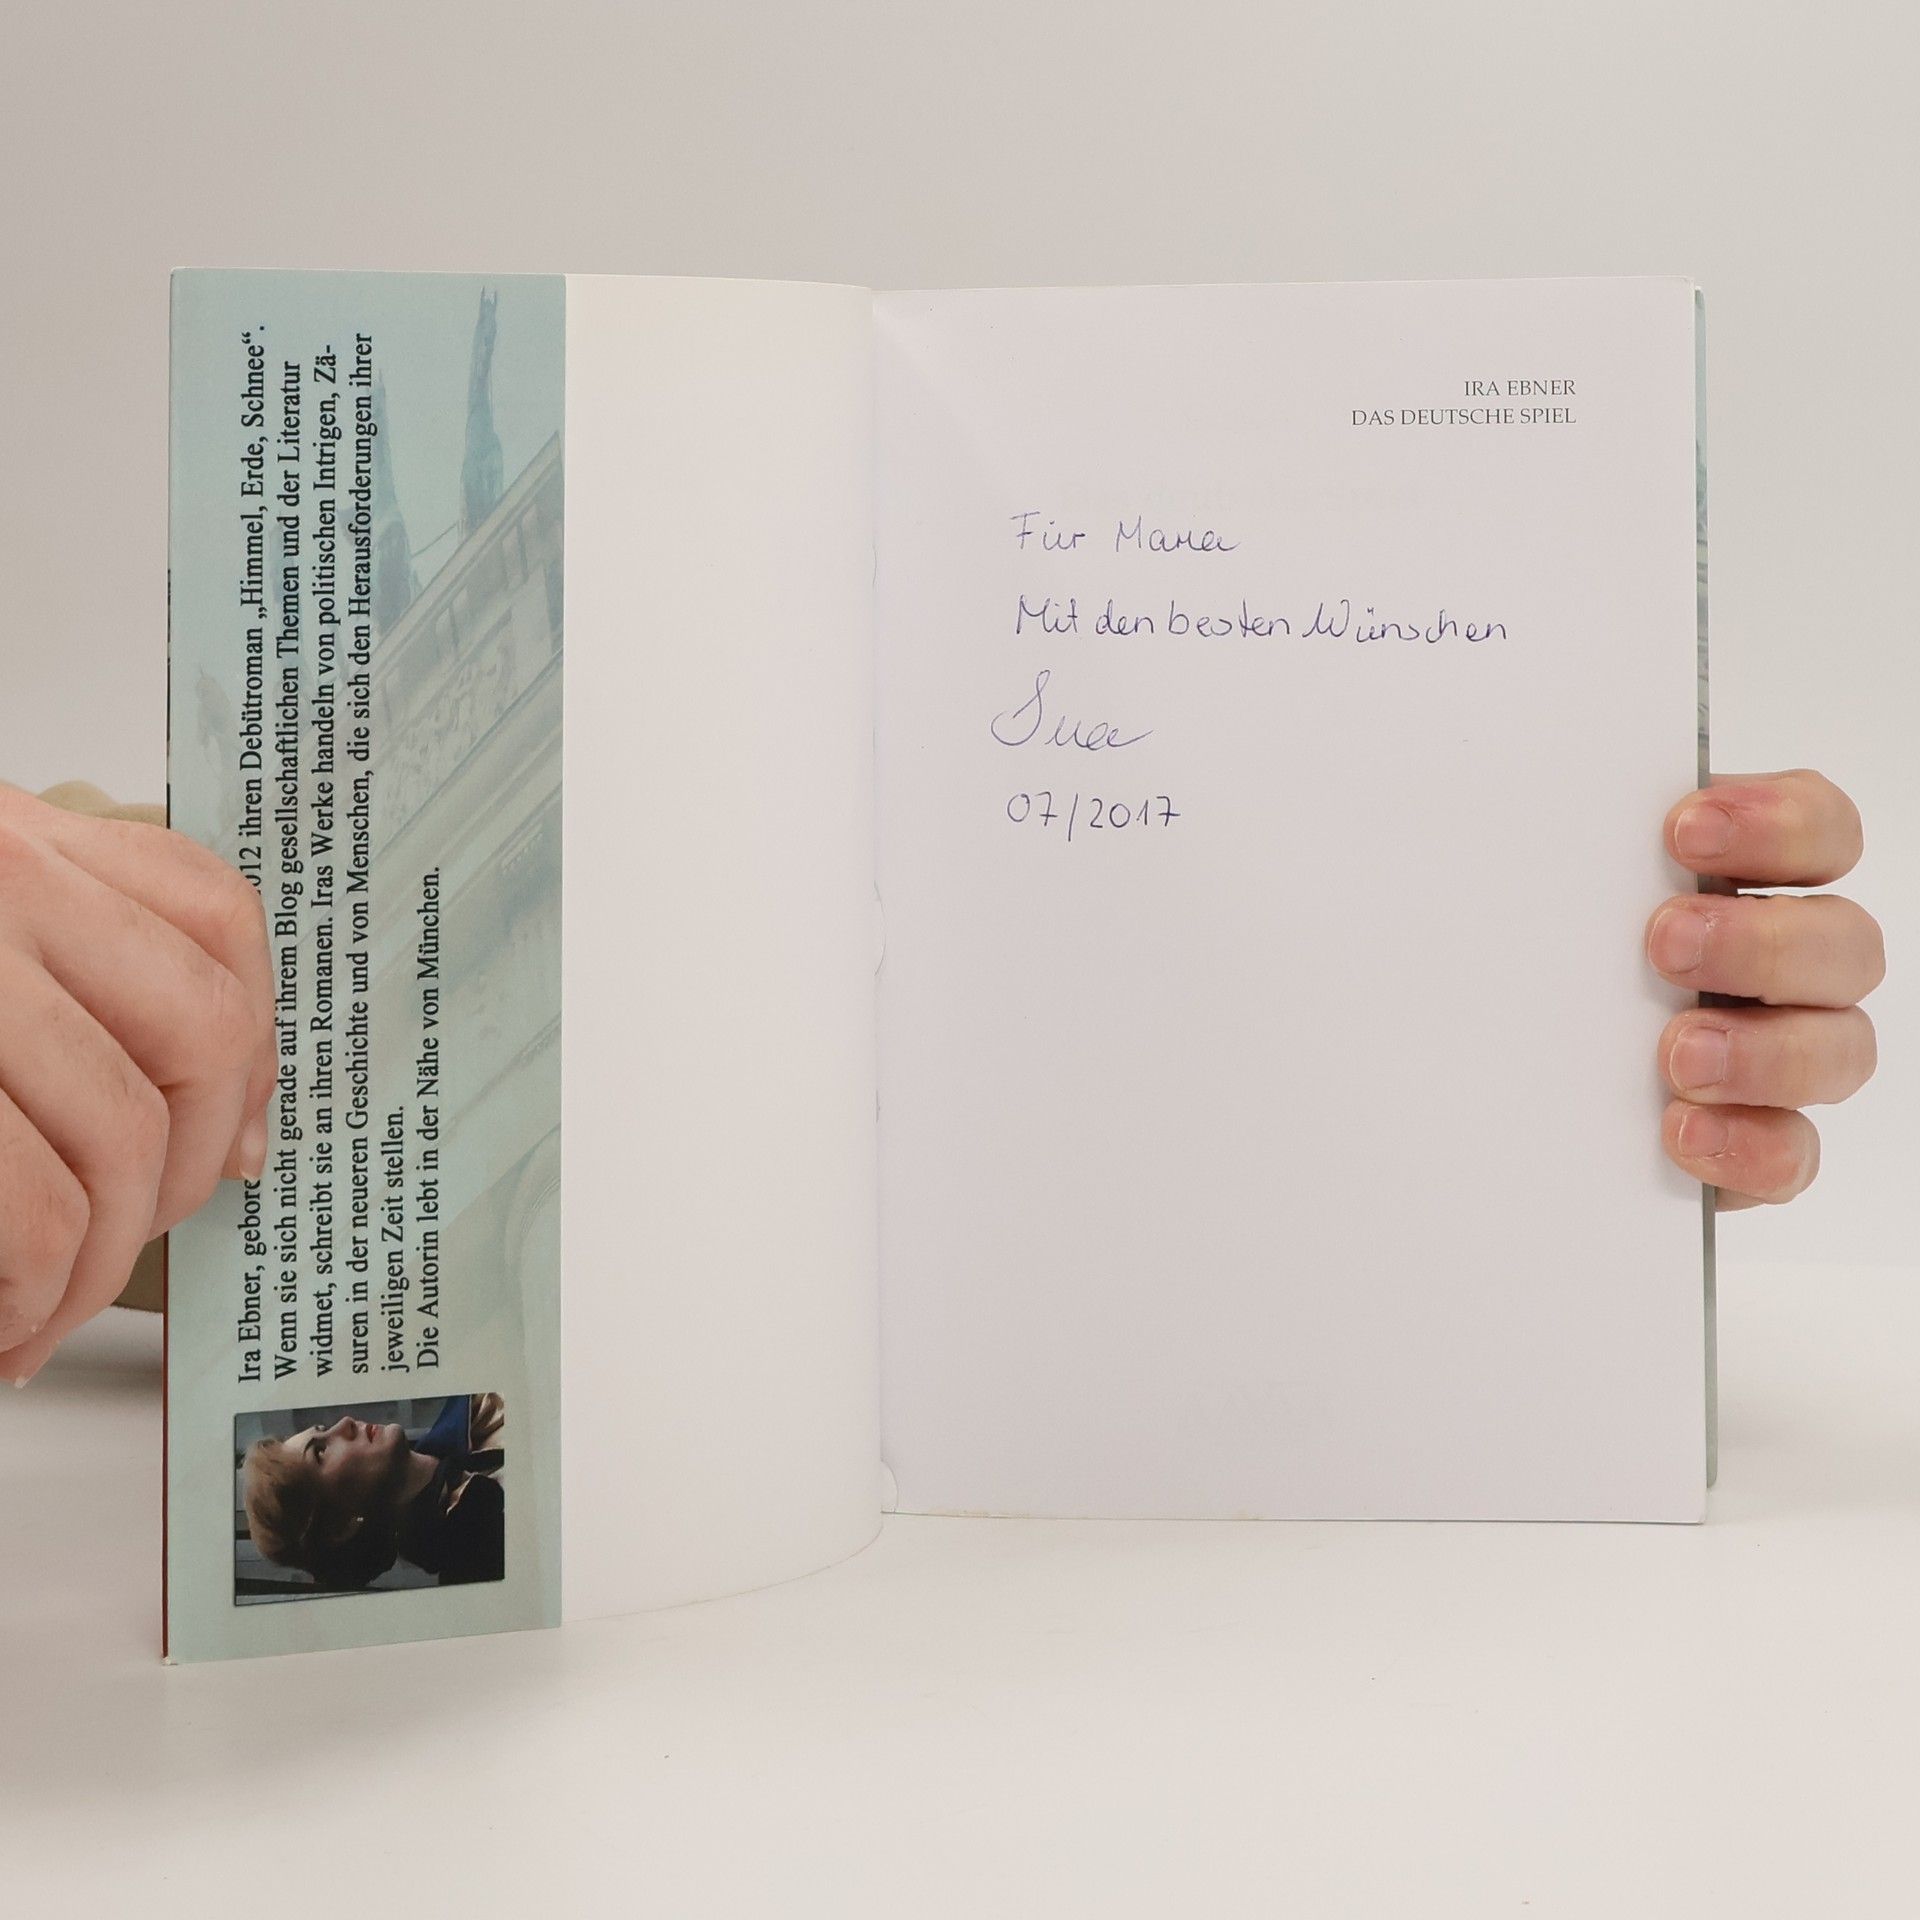 Ira Ebner, 012 ihren Debütroman „Himmel, Erde, Schnee“.
Wenn sie sich nicht gerade auf ihrem Blog gesellschaftlichen Themen und der Literatur
widmet, schreibt sie an ihren Romanen. Iras Werke handeln von politischen Intrigen, Zä-
suren in der neueren Geschichte und von Menschen, die sich den Herausforderungen ihrer
jeweiligen Zeit stellen.
Die Autorin lebt in der Nähe von München.
IRA EBNER
DAS DEUTSCHE SPIEL
Für Maria
Mit den besten Wünschen
Ira
07/2017